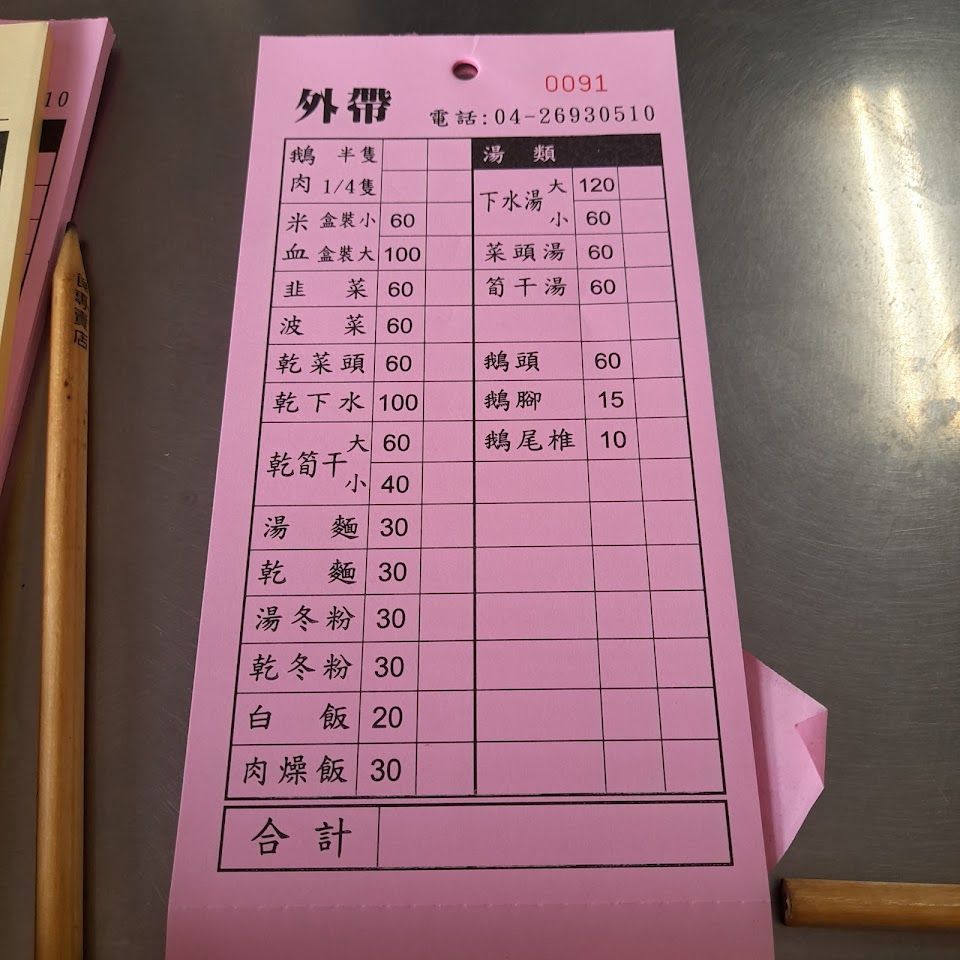 外帶
0091
電話:04-26930510
鵝肉 半隻
1/4隻
米血 盒裝小 60
盒裝大 100
韭菜 60
波菜 60
乾菜頭 60
乾下水 100
乾筍干 大 60
小 40
湯麵 30
乾麵 30
湯冬粉 30
乾冬粉 30
白飯 20
肉燥飯 30
湯類
下水湯 大 120
小 60
菜頭湯 60
筍干湯 60
鵝頭 60
鵝腳 15
鵝尾椎 10
合計
10
專賣店